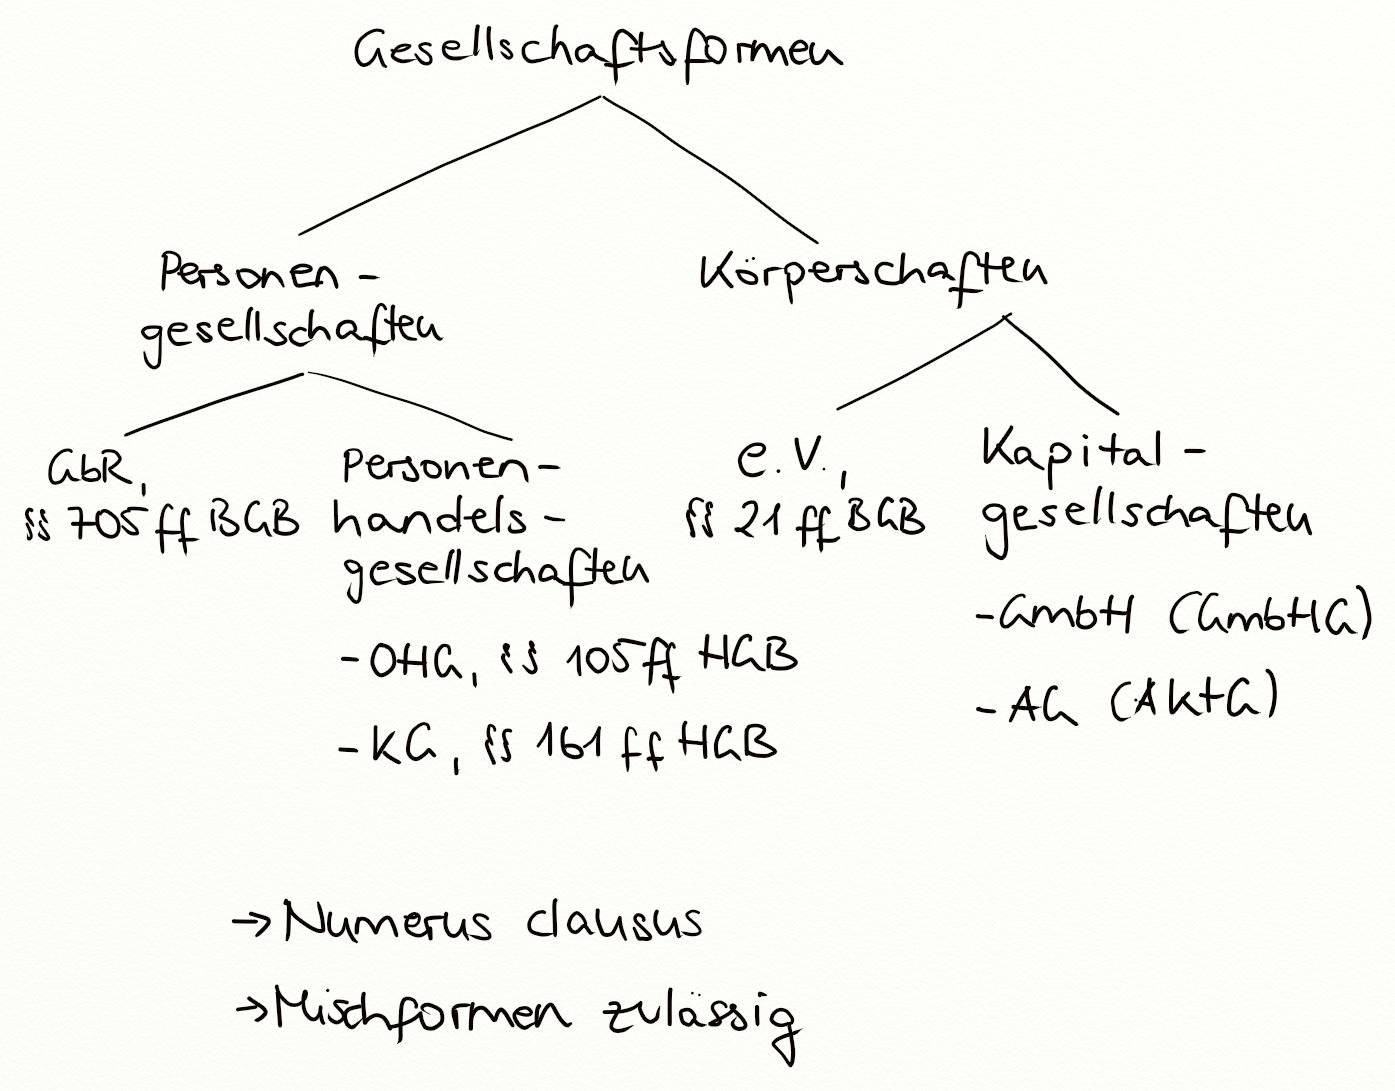 Gesellschaftsformen
Personen-
gesellschaften
Körperschaften
GbR,
§§ 705 ff BGB
Personen-
handels-
gesellschaften
- OHG, §§ 105 ff HGB
- KG, §§ 161 ff HGB
e.V.,
§§ 21 ff BGB
Kapital-
gesellschaften
- GmbH (GmbHG)
- AG (AktG)
→ Numerus clausus
→ Mischformen zulässig